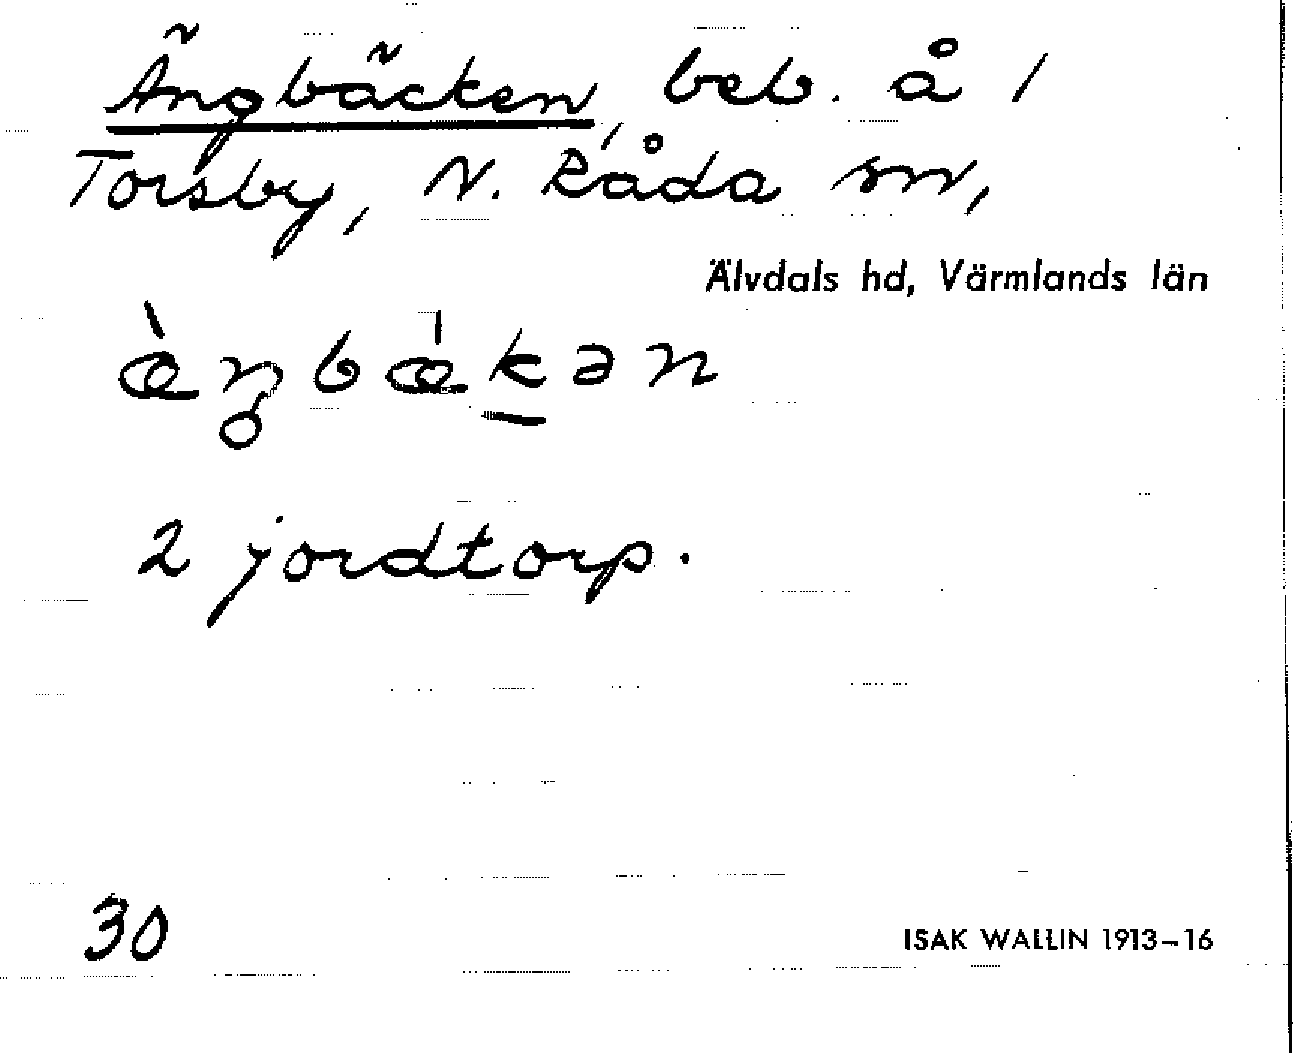 Ängbäcken, beb. å 1
Torsby, N. Råda sn,
Älvdals hd, Värmlands län
æ̀ŋbæ̍k̠ən
2 jordtorp.
30
ISAK WALLIN 1913–16